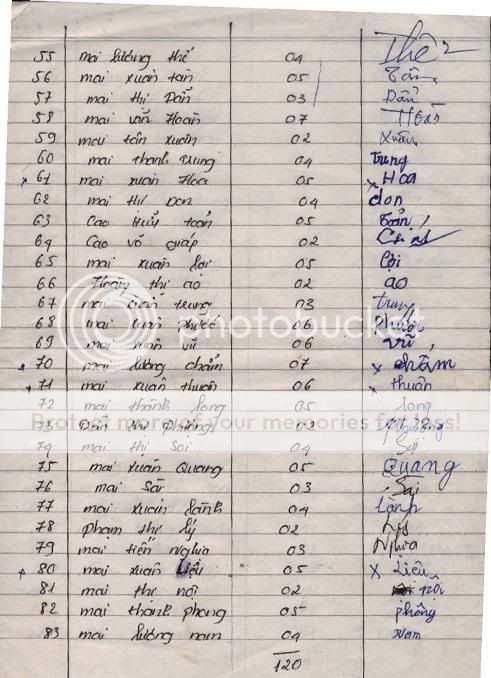 55 mai lương thế 04 Thế
56 mai xuân tân 05 Tân
57 mai thị Dẩn 03 Dẩn
58 mai văn Hoan 07
59 mai tân xuân 02 xuân
60 mai thanh trung 04 trung
x 61 mai xuan Hoa 05 x Hoa
62 mai thị Don 04 don
63 Cao Hữu toản 05 toản
64 Cao võ giáp 02
65 mai xuân 05
66 Hoàng thị ảo 02 ao
67 mai xuân trung 03 trung
68 mai xuân phước 06 phước
69 mai xuân vũ 06 vũ
70 mai lương châm 07 x châm
71 mai xuân thuân 06 x thuân
72 mai thành long 05 long
73 thị phượng 02 phượng
photobucket
Protect more of your memories for less!
74 mai thị Sai 04 Sai
75 mai xuân Quang 05 Quang
76 mai Sãi 03 Sãi
77 mai xuân Lành 04 Lành
78 phạm thị Lý 02 Lý
79 mai tiến nghĩa 03 Nghĩa
80 mai xuân Liệu 05 x Liệu
81 mai thị nội 02 nội
82 mai thanh phong 05 phong
83 mai lương nam 04 nam
120